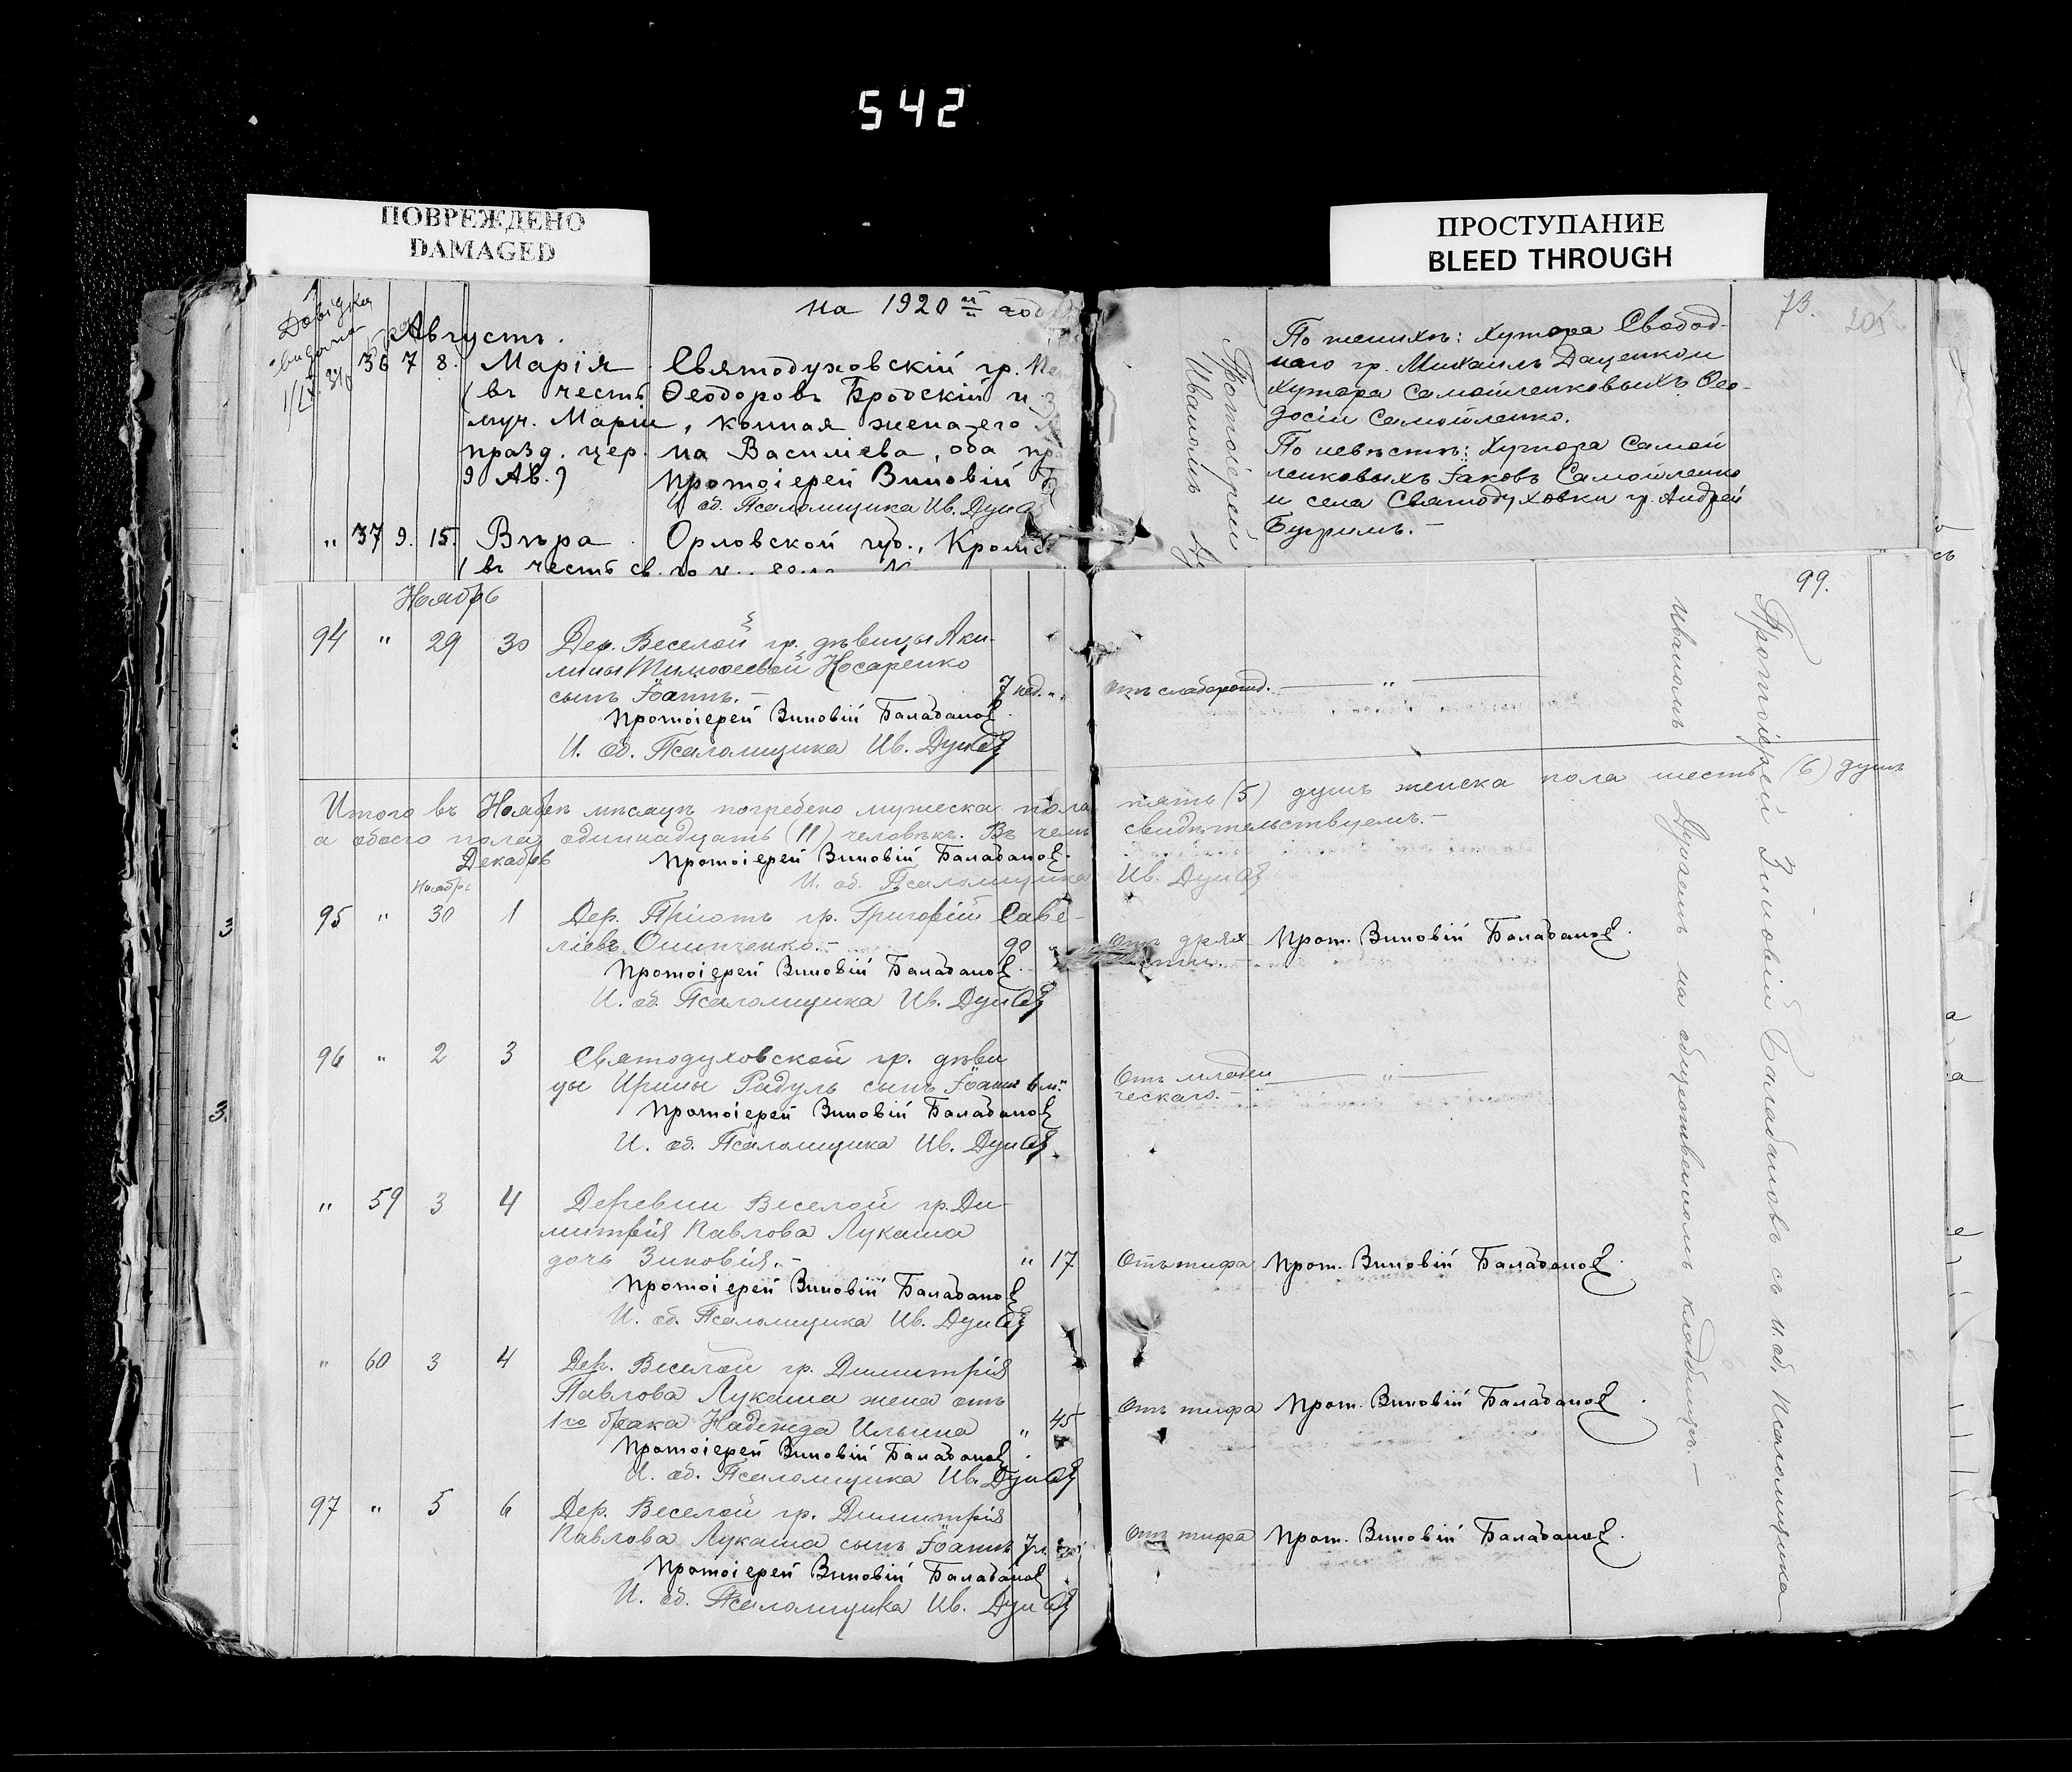 542
ПОВРЕЖДЕНО
DAMAGED
ПРОСТУПАНИЕ
BLEED THROUGH
на 1920 й год
Довідка
видана
Августъ.
36 7 8. Марія Святодуховскій гр.
(въ честь Ѳеодоровъ Бродскій и
муч. Маріи, конная жена его
празд. цер. на Василіева, оба пр
9 Ав.) Протоіерей Зиновій
об. Псаломщика Ив.
" 37 9. 15. Вѣра Орловской губ.,
(въ честь св.
73.
205
По женихѣ: хутора Свобод-
наго гр. Михаилъ Даценко и
хутора Самойленковыхъ Ѳео-
досій Самойленко.
По невѣстѣ: Хутора Самой
ленковыхъ Іаковъ Самойленко
и села Святодуховки гр. Андрей
Протоіерей
Иваномъ
Ноябрь
94 " 29 30 Дер. Веселой гр. дѣвицы Аки-
лины Тимоѳеевой Носаренко
сынъ Іоаннъ.- 7 нед. "
Протоіерей Зиновій Балабановъ.
И. об. Псаломщика Ив.
Итого въ Ноябрѣ мѣсяцѣ погребено мужеска пола
а обоего пола одинадцать (11) человѣкъ. Въ чемъ
Декабрь Протоіерей Зиновій Балабановъ.
И. об. Псаломщика
Ноябрь
95 " 30 1 Дер. Пріютъ гр. Григорій Саве-
ліевъ 90 "
Протоіерей Зиновій Балабановъ.
И. об. Псаломщика Ив.
96 " 2 3 Святодуховской гр. дѣви
цы Ирины Радуль сынъ Іоаннъ 6 м."
Протоіерей Зиновій Балабановъ
И. об. Псаломщика Ив.
" 59 3 4 Деревни Веселой гр. Ди-
митрія Павлова Лукаша
дочь Зиновія.- " 17
Протоіерей Зиновій Балабановъ
И. об. Псаломщика Ив.
" 60 3 4 Дер. Веселой гр. Димитрія
Павлова Лукаша жена отъ
1го брака Надежда Ильина " 45
Протоіерей Зиновій Балабановъ.
И. об. Псаломщика Ив.
97 " 5 6 Дер. Веселой гр. Димитрія
Павлова Лукаша сынъ Іоаннъ
Протоіерей Зиновій Балабановъ
И. об. Псаломщика Ив.
99.
отъ слаборожд. "
пять (5) душъ женска пола шесть (6) душъ
свидѣтельствуемъ.-
Ив.
Отъ дрях Прот. Зиновій Балабановъ.
Отъ младен "
ческаго.-
Отъ тифа Прот. Зиновій Балабановъ.
Отъ тифа Прот. Зиновій Балабановъ.
Отъ тифа Прот. Зиновій Балабановъ.
Протоіерей Зиновій Балабановъ съ и. об. Псаломщика
Иваномъ на общественномъ кладбищѣ.-